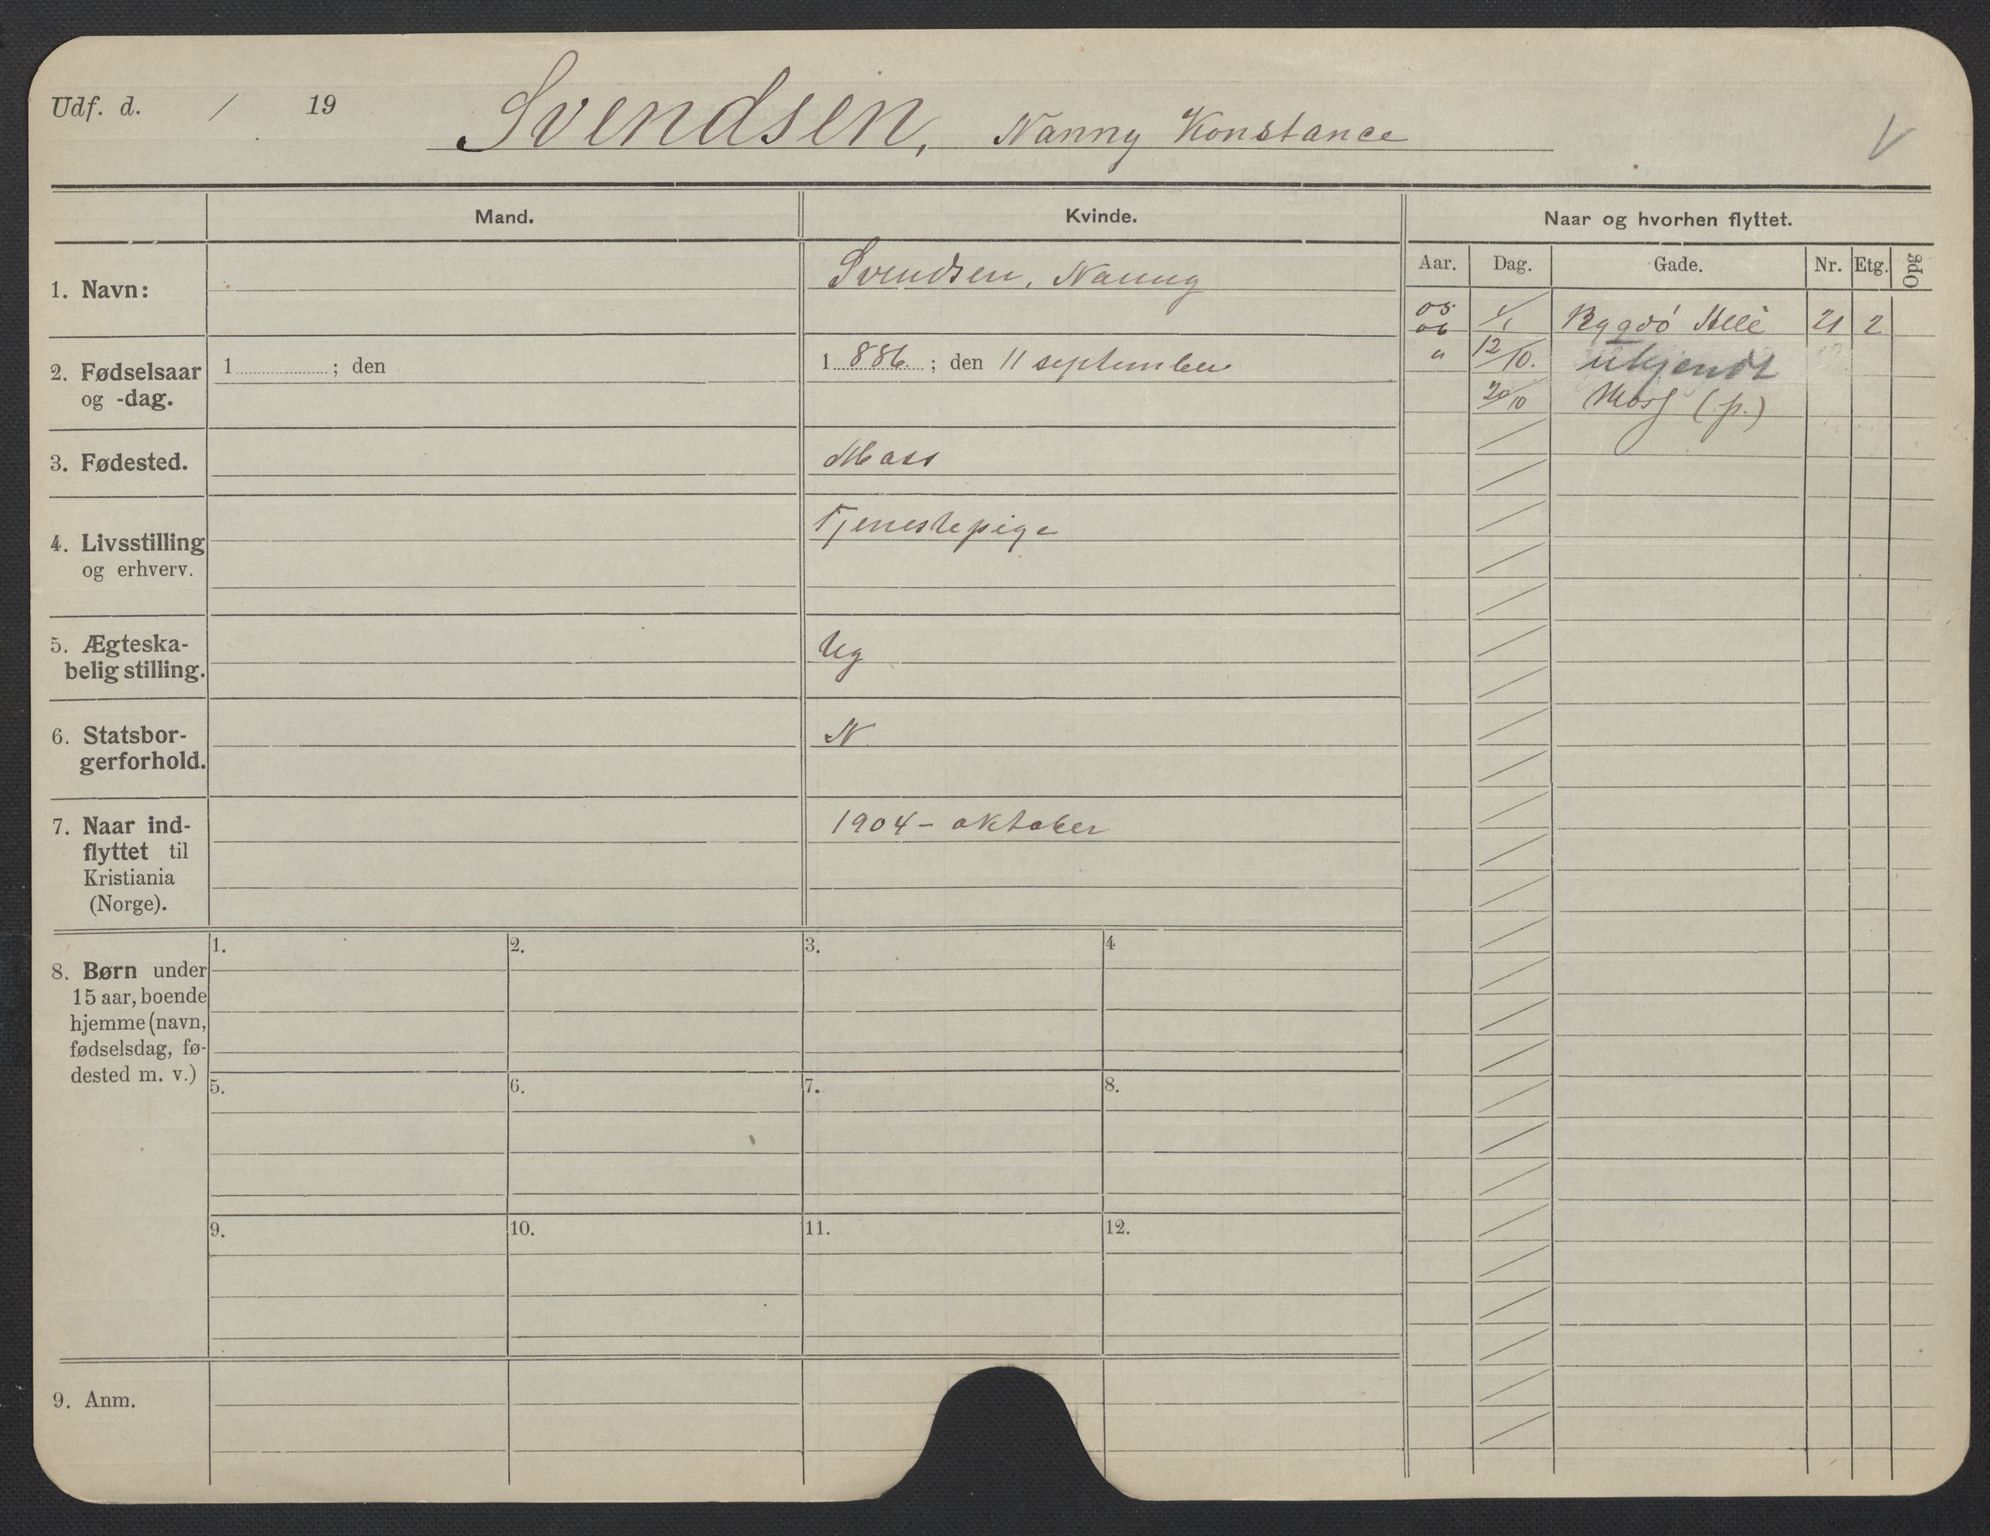 Udf. d. / 19
Svendsen, Nanny Konstance
V
Mand.
Kvinde.
Naar og hvorhen flyttet.
Aar. Dag. Gade. Nr. Etg. Opg
1. Navn:
Svendsen, Nanny
05
06 1/1 Bygdö Allè 21 2
" 12/10. ukjendt
20/10 Moss (p.)
2. Fødselsaar
og -dag.
1 ; den
1 886 ; den 11 september
3. Fødested.
Moss
4. Livsstilling
og erhverv.
Tjenestepige
5. Ægteska-
belig stilling.
Ug
6. Statsbor-
gerforhold.
N
7. Naar ind-
flyttet til
Kristiania
(Norge).
1904 - oktober
8. Børn under
15 aar, boende
hjemme (navn,
fødselsdag, fø-
dested m. v.)
1. 2. 3. 4
5. 6. 7. 8.
9. 10. 11. 12.
9. Anm.